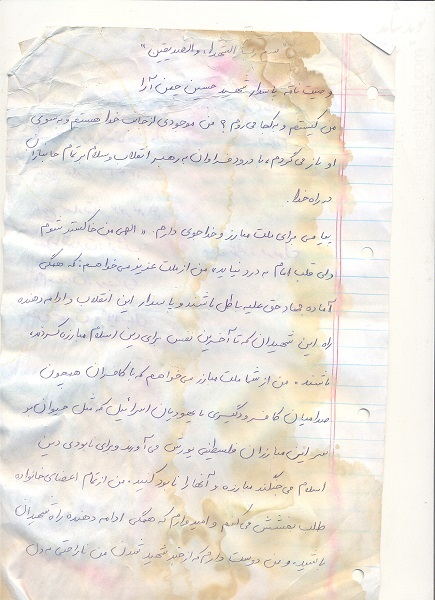 "بسم رب الشهداء والصدیقین"
وصیت نامه پاسدار شهید حسین چمن آرا
من کیستم و به کجا می روم؟ من موجودی از جانب خدا هستم و به سوی
او باز می گردم، با درود فراوان به رهبر انقلاب و سلام بر تمام جانبازان
در راه خدا.
پیامی برای ملت مبارز و خداجوی دارم. «الهی من خاکستر شوم
ولی قلب امام به درد نیاید» من از ملت عزیز می خواهم: که همگی
آماده جهاد حق علیه باطل باشند و پاسدار این انقلاب و ادامه دهنده
راه این شهیدان که تا آخرین نفس برای دین اسلام مبارزه کردند،
باشند. من از شما ملت مبارز می خواهم که با کافران همچون
صدامیان کافر و دیگری با یهودیان اسرائیل که مثل حیوان بر
سر این مبارزان فلسطینی یورش می آورند و برای نابودی دین
اسلام می جنگند مبارزه و آنها را نابود کنید. من از تمام اعضای خانواده
طلب بخشش می کنم و امیدوارم که همگی ادامه دهنده راه شهیدان
باشید. و من دوست دارم که از خبر شهید شدن من ناراحتی به دل